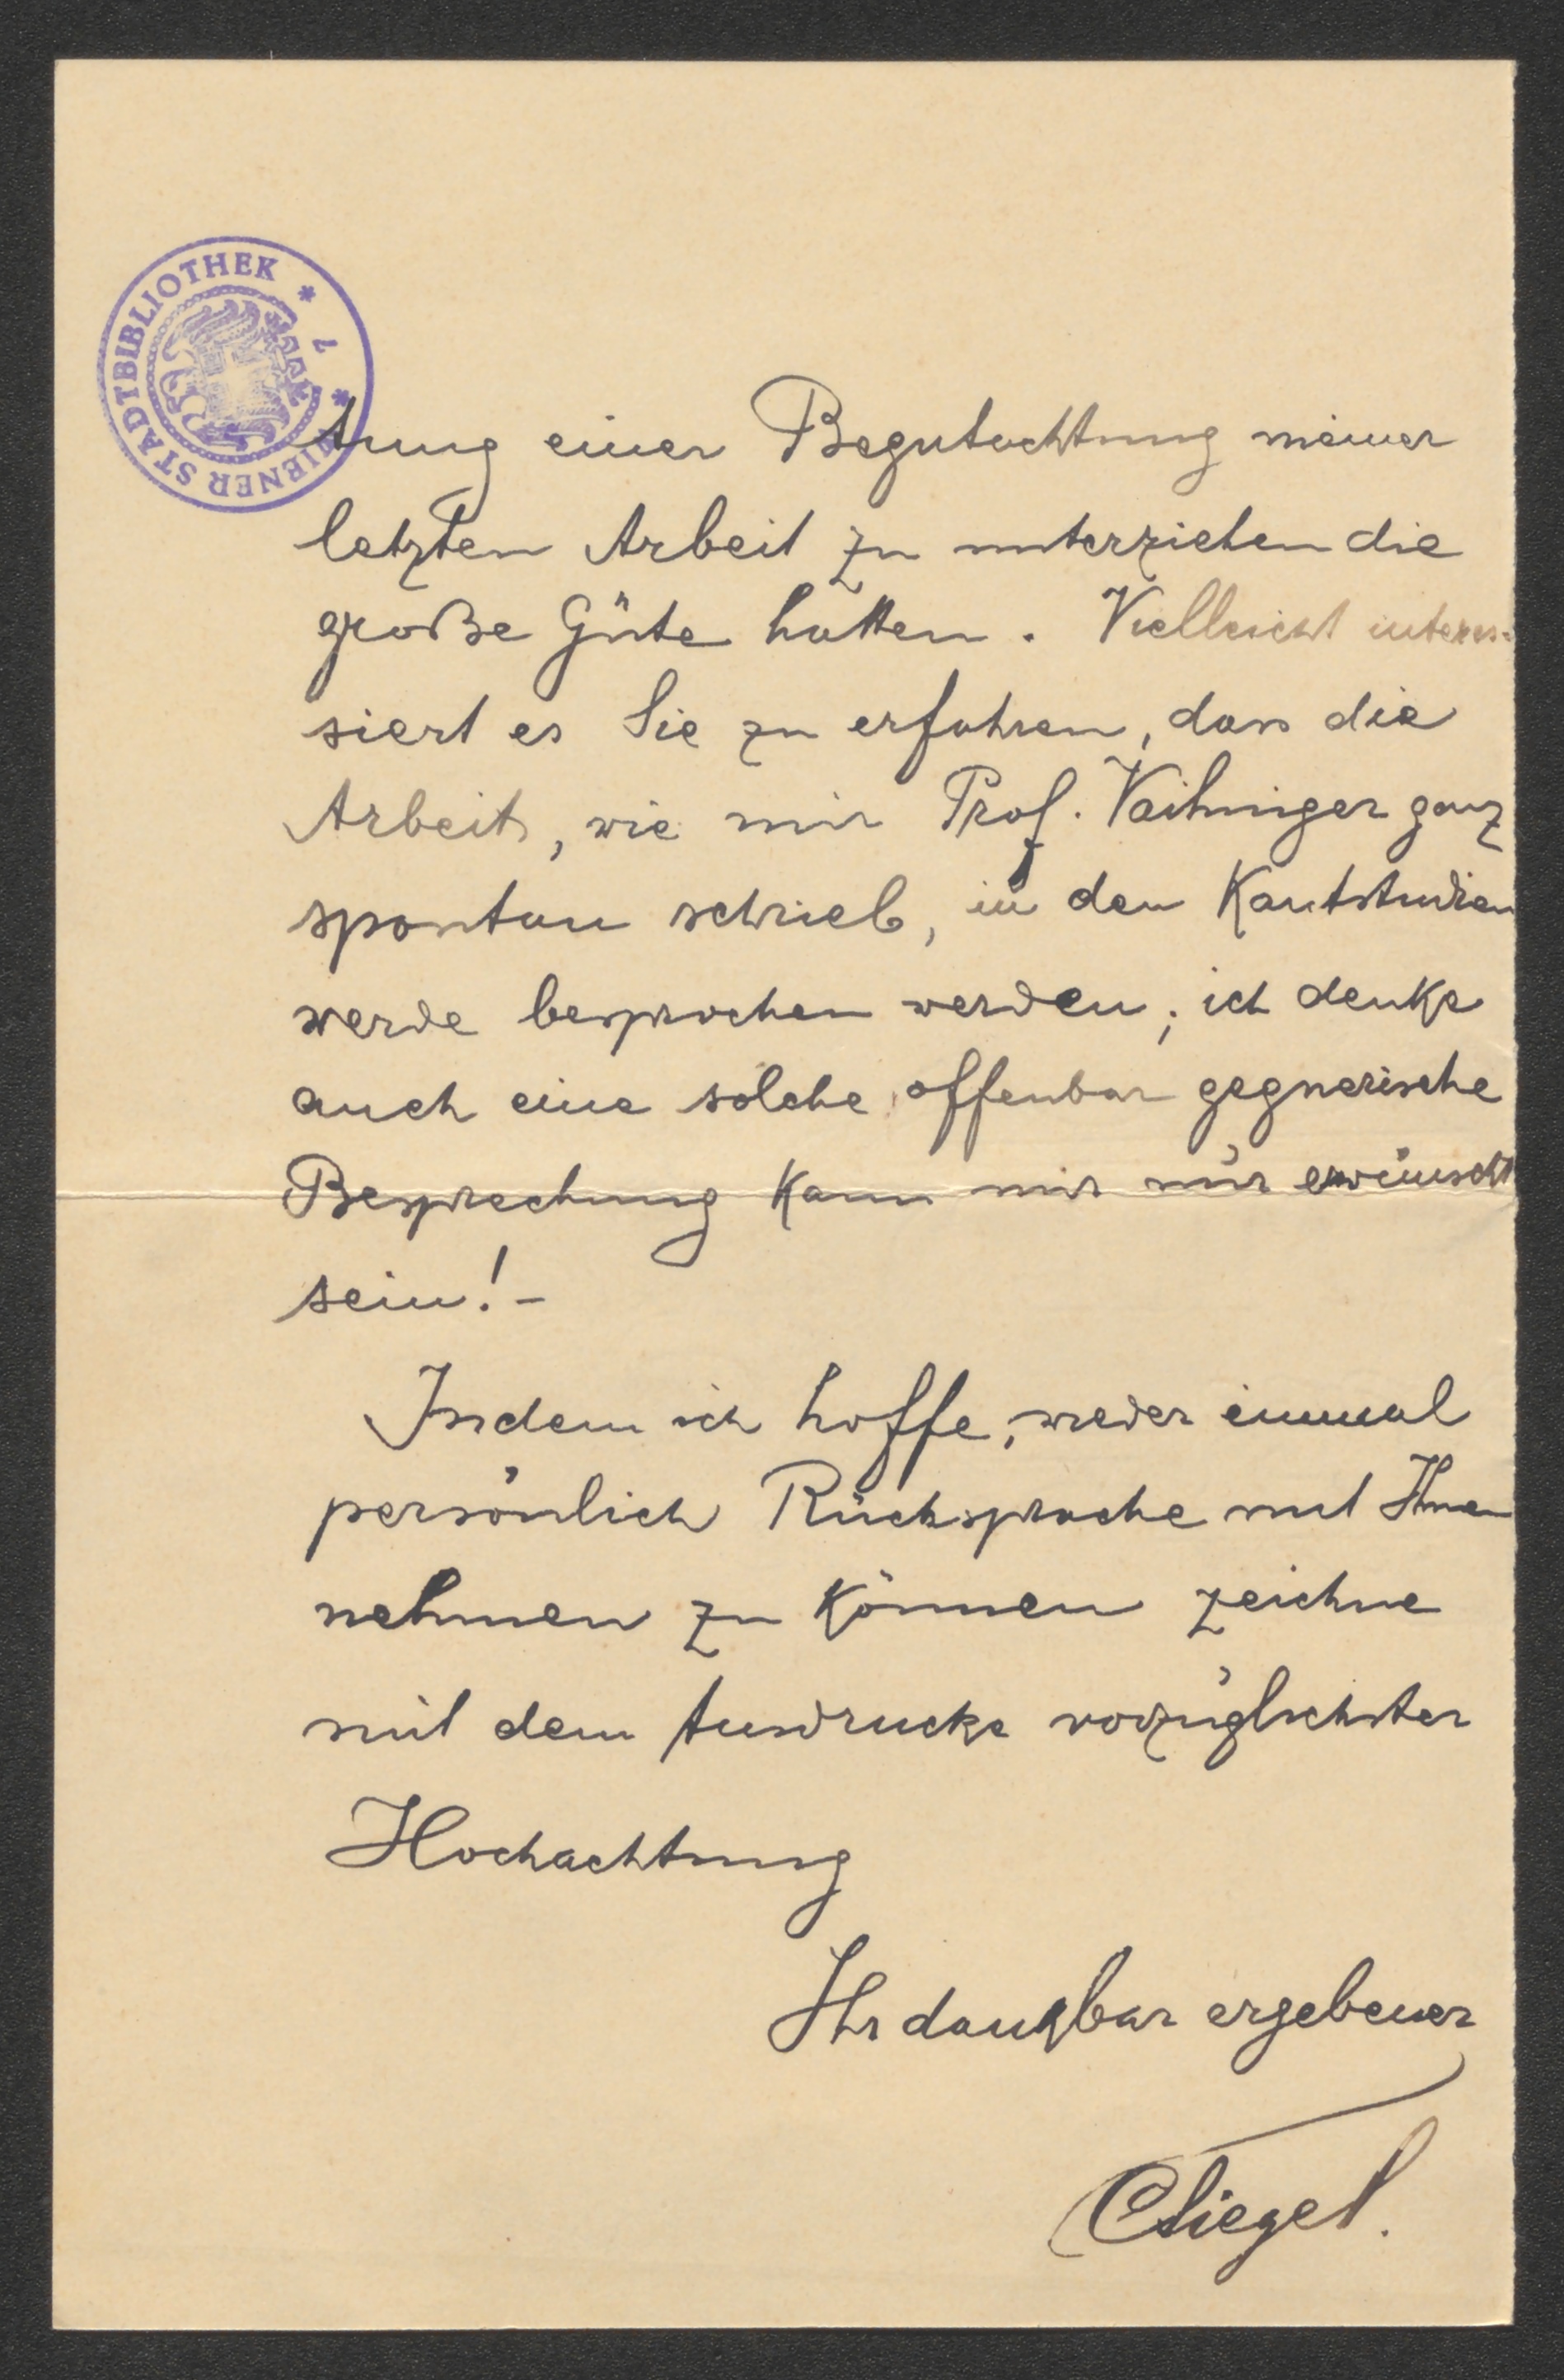 WIENER STADTBIBLIOTHEK * 7 *
tung einer Begutachtung meiner
letzten Arbeit zu unterziehen die
große Güte hatten. Vielleicht interes-
siert es Sie zu erfahren, dass die
Arbeit, wie mir Prof. Vaihinger ganz
spontan schrieb, in den Kantstudien
werde besprochen werden; ich denke
auch eine solche offenbar gegnerische
Besprechung kann mir nur erwünscht
sein! -
Indem ich hoffe, wieder einmal
persönlich Rücksprache mit Ihnen
nehmen zu können zeichne
mit dem Ausdrucke vorzüglichster
Hochachtung
Ihr dankbar ergebener